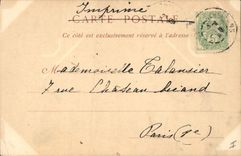 Imprimé
CARTE POSTALE
Ce côté est exclusivement réservé à l'adresse
Mademoiselle de Talansier
7 rue Château Landon
Paris (Xe)